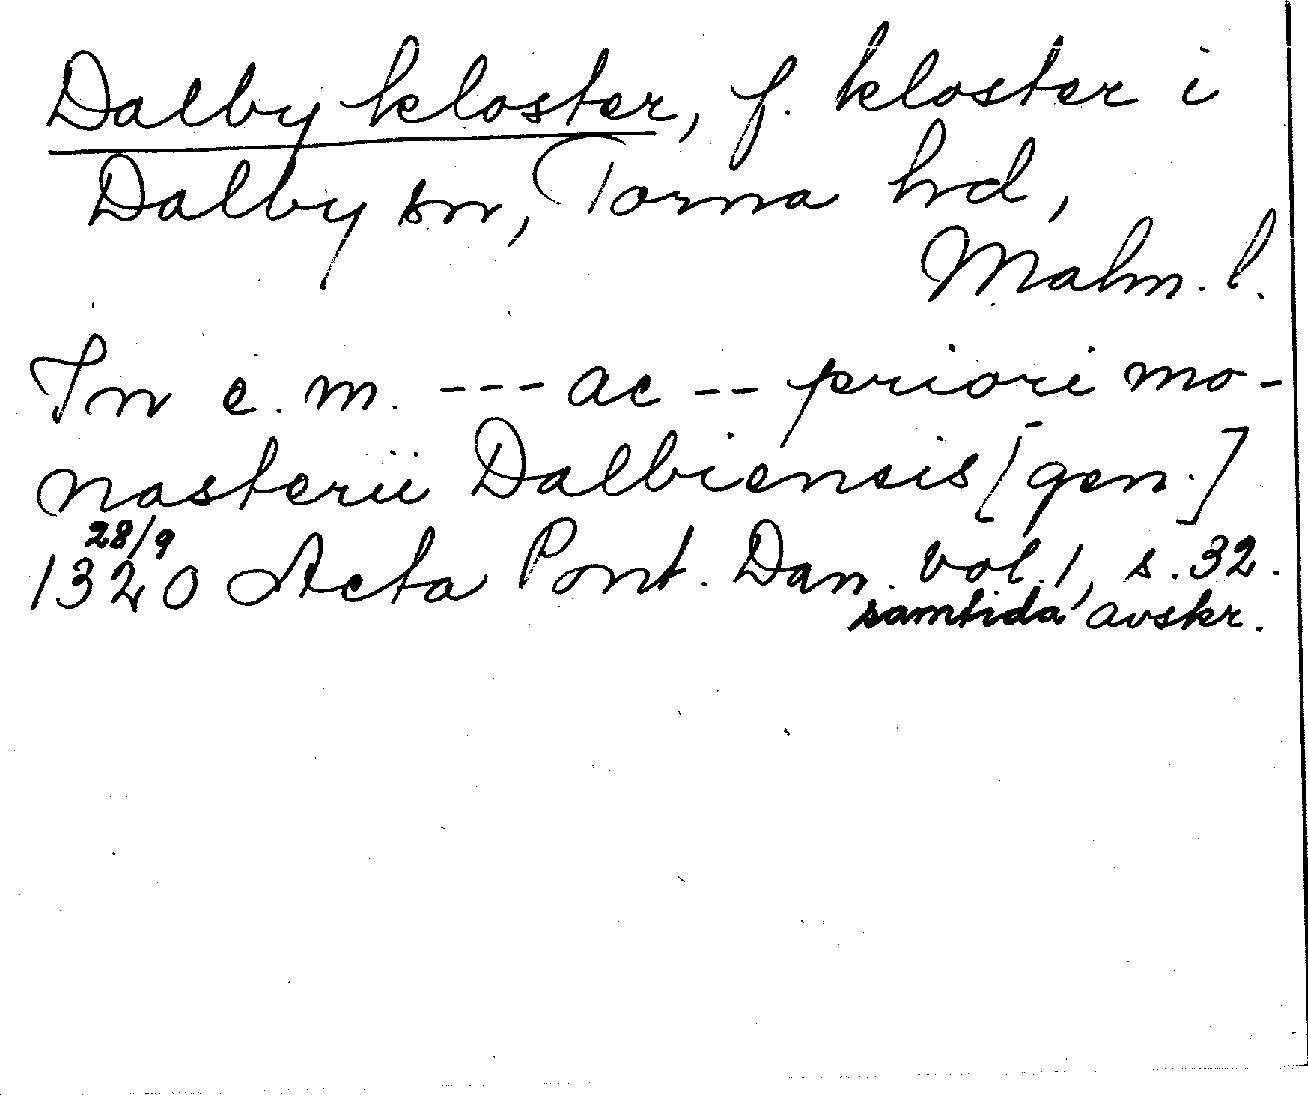 Dalby kloster, f. kloster i
Dalby sn, Torna hd,
Malm. l.
In e. m. --- ac -- priori mo-
nasterii Dalbiensis [gen.]
28/9
1320 Acta Pont. Dan. vol. 1, s. 32.
samtida avskr.